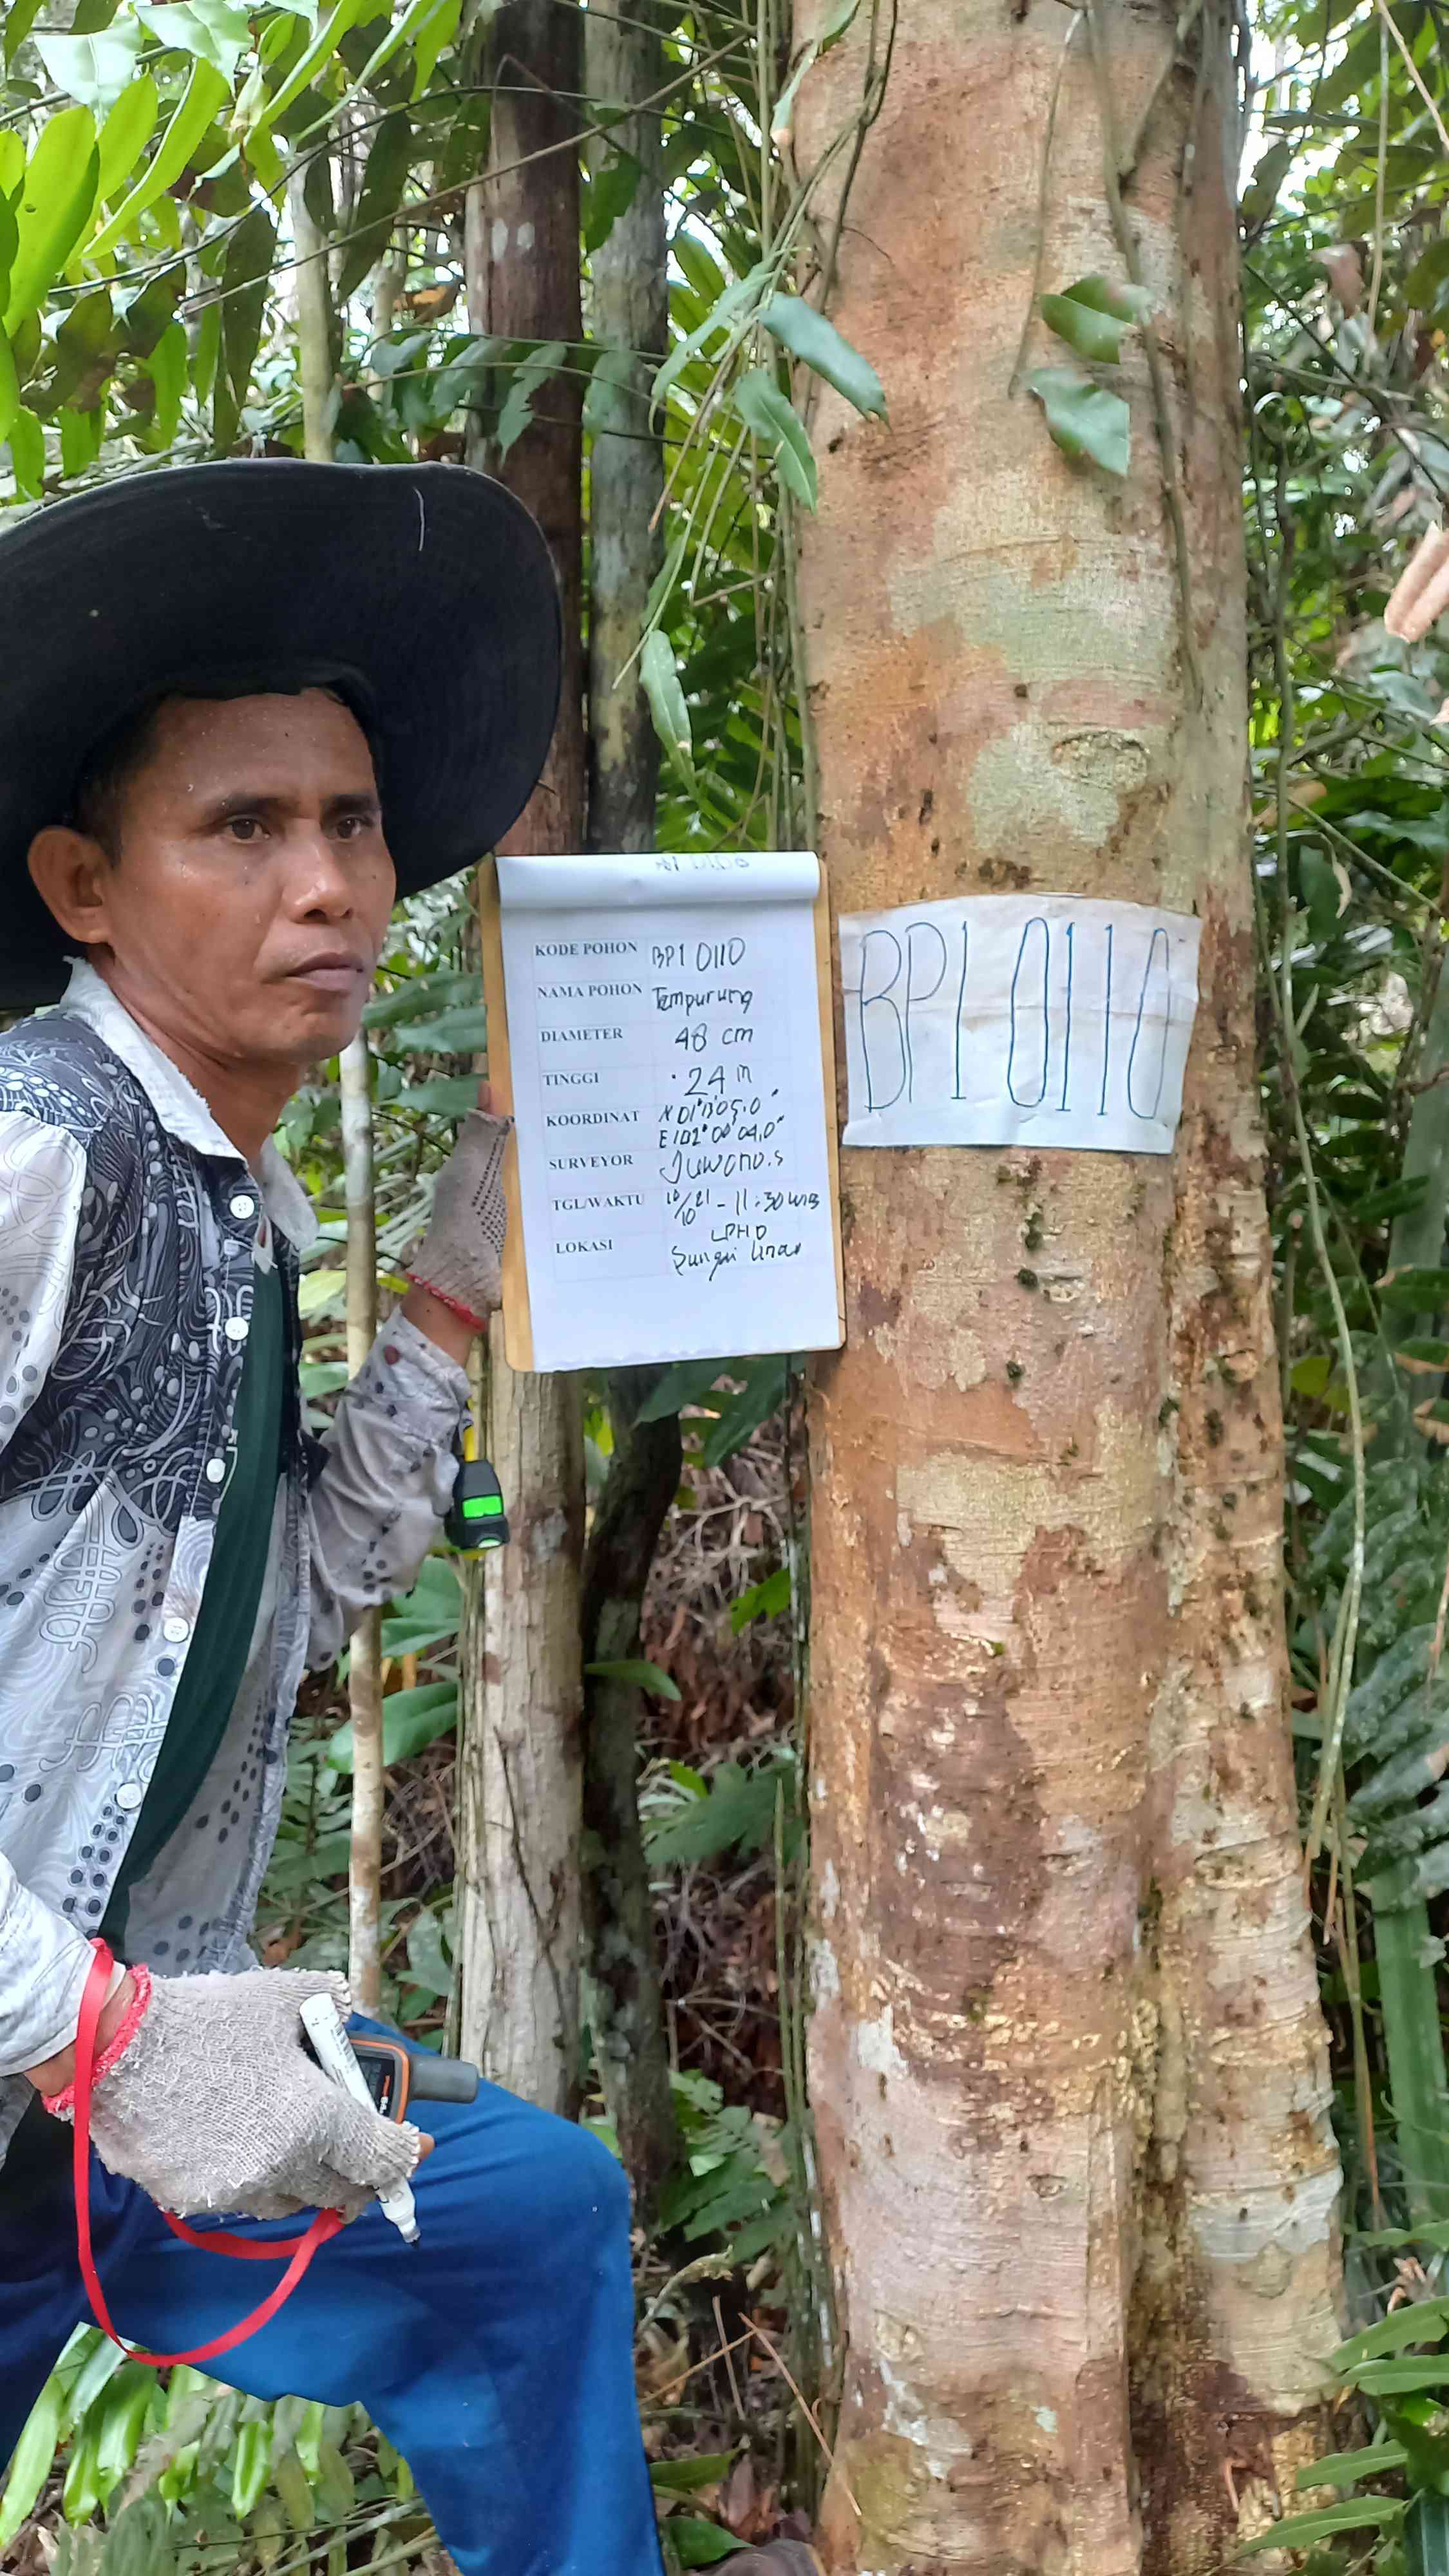 KODE POHON BP1 0110
NAMA POHON Tempurung
DIAMETER 48 cm
TINGGI 24 m
KOORDINAT N 01°13'05.0"
E 102°00'04.0"
SURVEYOR Juwono.s
TGL/WAKTU 10/10/21 - 11:30 WIB
LPHD
LOKASI Sungai
BP1 0110